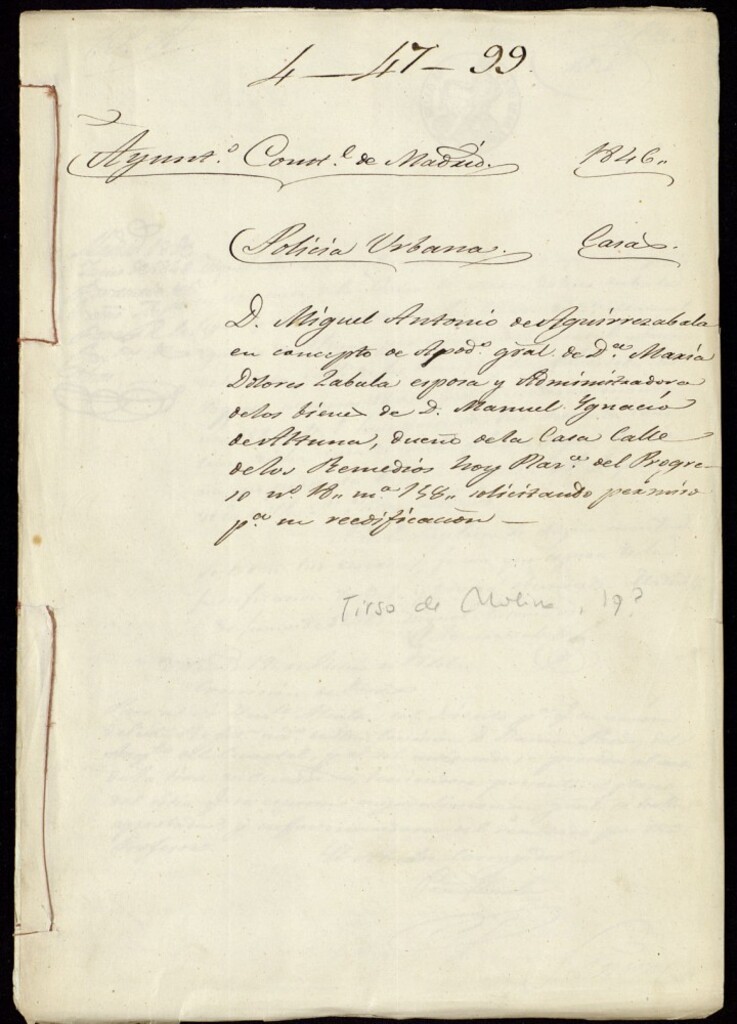 4 – 47 – 99
Ayunt.º Const.l de Madrid. 1846.,
Policia Urbana. Casas.
D. Miguel Antonio de Aguirrezabala
en concepto de Apod.º gral. de D.ª Maria
Dolores Zabala esposa y Administradora
de los bienes de D. Manuel Ygnacio
de Altuna, dueño de la Casa Calle
de los Remedios hoy Plaz.ª del Progre-
so nº 18., m.ª 158., solicitando permiso
p.ª su reedificacion —
Tirso de Molina, 19?